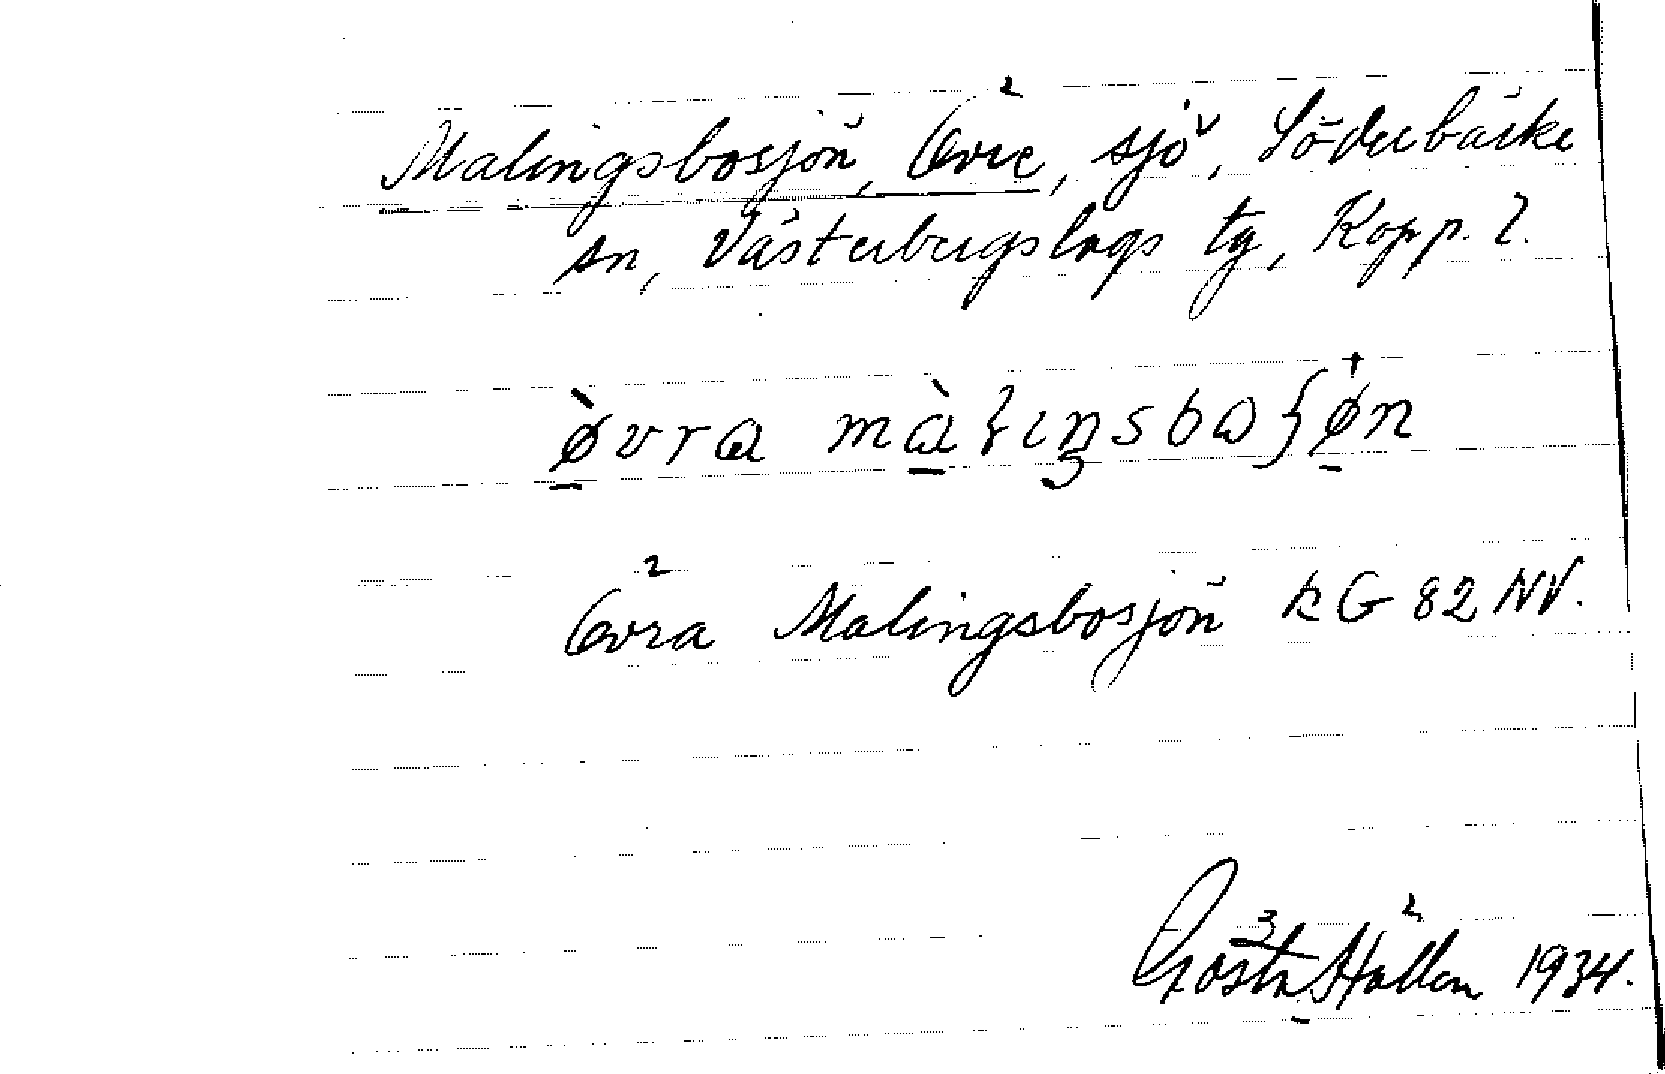 Malingsbosjön, Övre, sjö, Söderbärke
sn, Västerbergslags tg, Kopp. l.
ø̀vra mὰlıŋsbωʃøn
Övra Malingsbosjön kG 82 NV.
Gösta Hallén 1934.